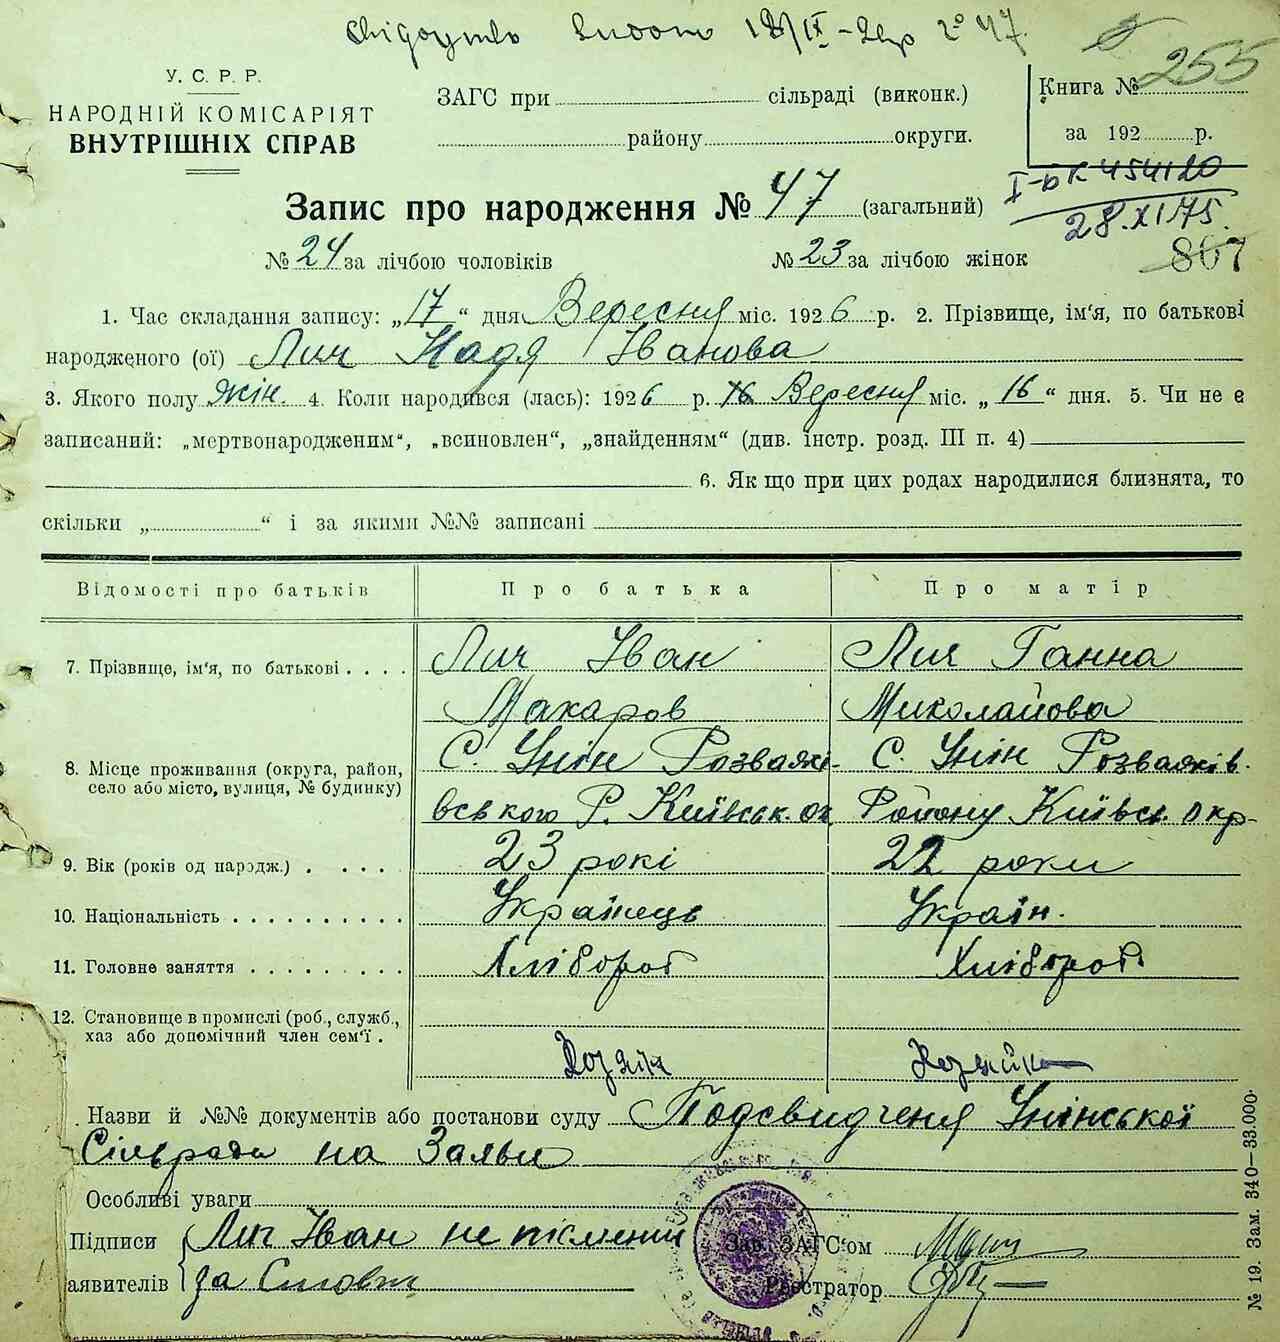 У. С. Р. Р.
НАРОДНІЙ КОМІСАРІЯТ
ВНУТРІШНІХ СПРАВ
ЗАГС при сільраді (виконк.)
району округи.
Книга № 255
за 192 р.
28.XI 75.
867
Запис про народження № 47 (загальний)
№ 24 за лічбою чоловіків № 23 за лічбою жінок
1. Час складання запису: „17“ дня Вересня міс. 1926 р. 2. Прізвище, ім'я, по батькові
народженого (ої) Лич Надя Іванова
3. Якого полу жін. 4. Коли народився (лась): 1926 р. 16 Вересня міс. „16“ дня. 5. Чи не є
записаний: „мертвонародженим“, „всиновлен“, „знайденням“ (див. інстр. розд. III п. 4)
6. Як що при цих родах народилися близнята, то
скільки „ “ і за якими №№ записані
Відомості про батьків Про батька Про матір
7. Прізвище, ім'я, по батькові Лич Іван Лич Ганна
Макаров Миколайова
8. Місце проживання (округа, район, С. Унін Розважі- С. Унін Розважів.
село або місто, вулиця, № будинку) вського Р. Київськ. ок Району Київсь. окр-
9. Вік (років од народж.) 23 рокі 22 роки
10. Національність Українець Україн.
11. Головне заняття Хлібороб Хлібороб
12. Становище в промислі (роб., служб.,
хаз або допомічний член сем'ї.
Назви й №№ документів або постанови суду Подсвидченя Унінської
Сільради на
Особливі уваги
Підписи Лич Іван не písменний Зав. ЗАГС'ом
аявителів за Реєстратор
№ 19. Зам. 340—33.000.